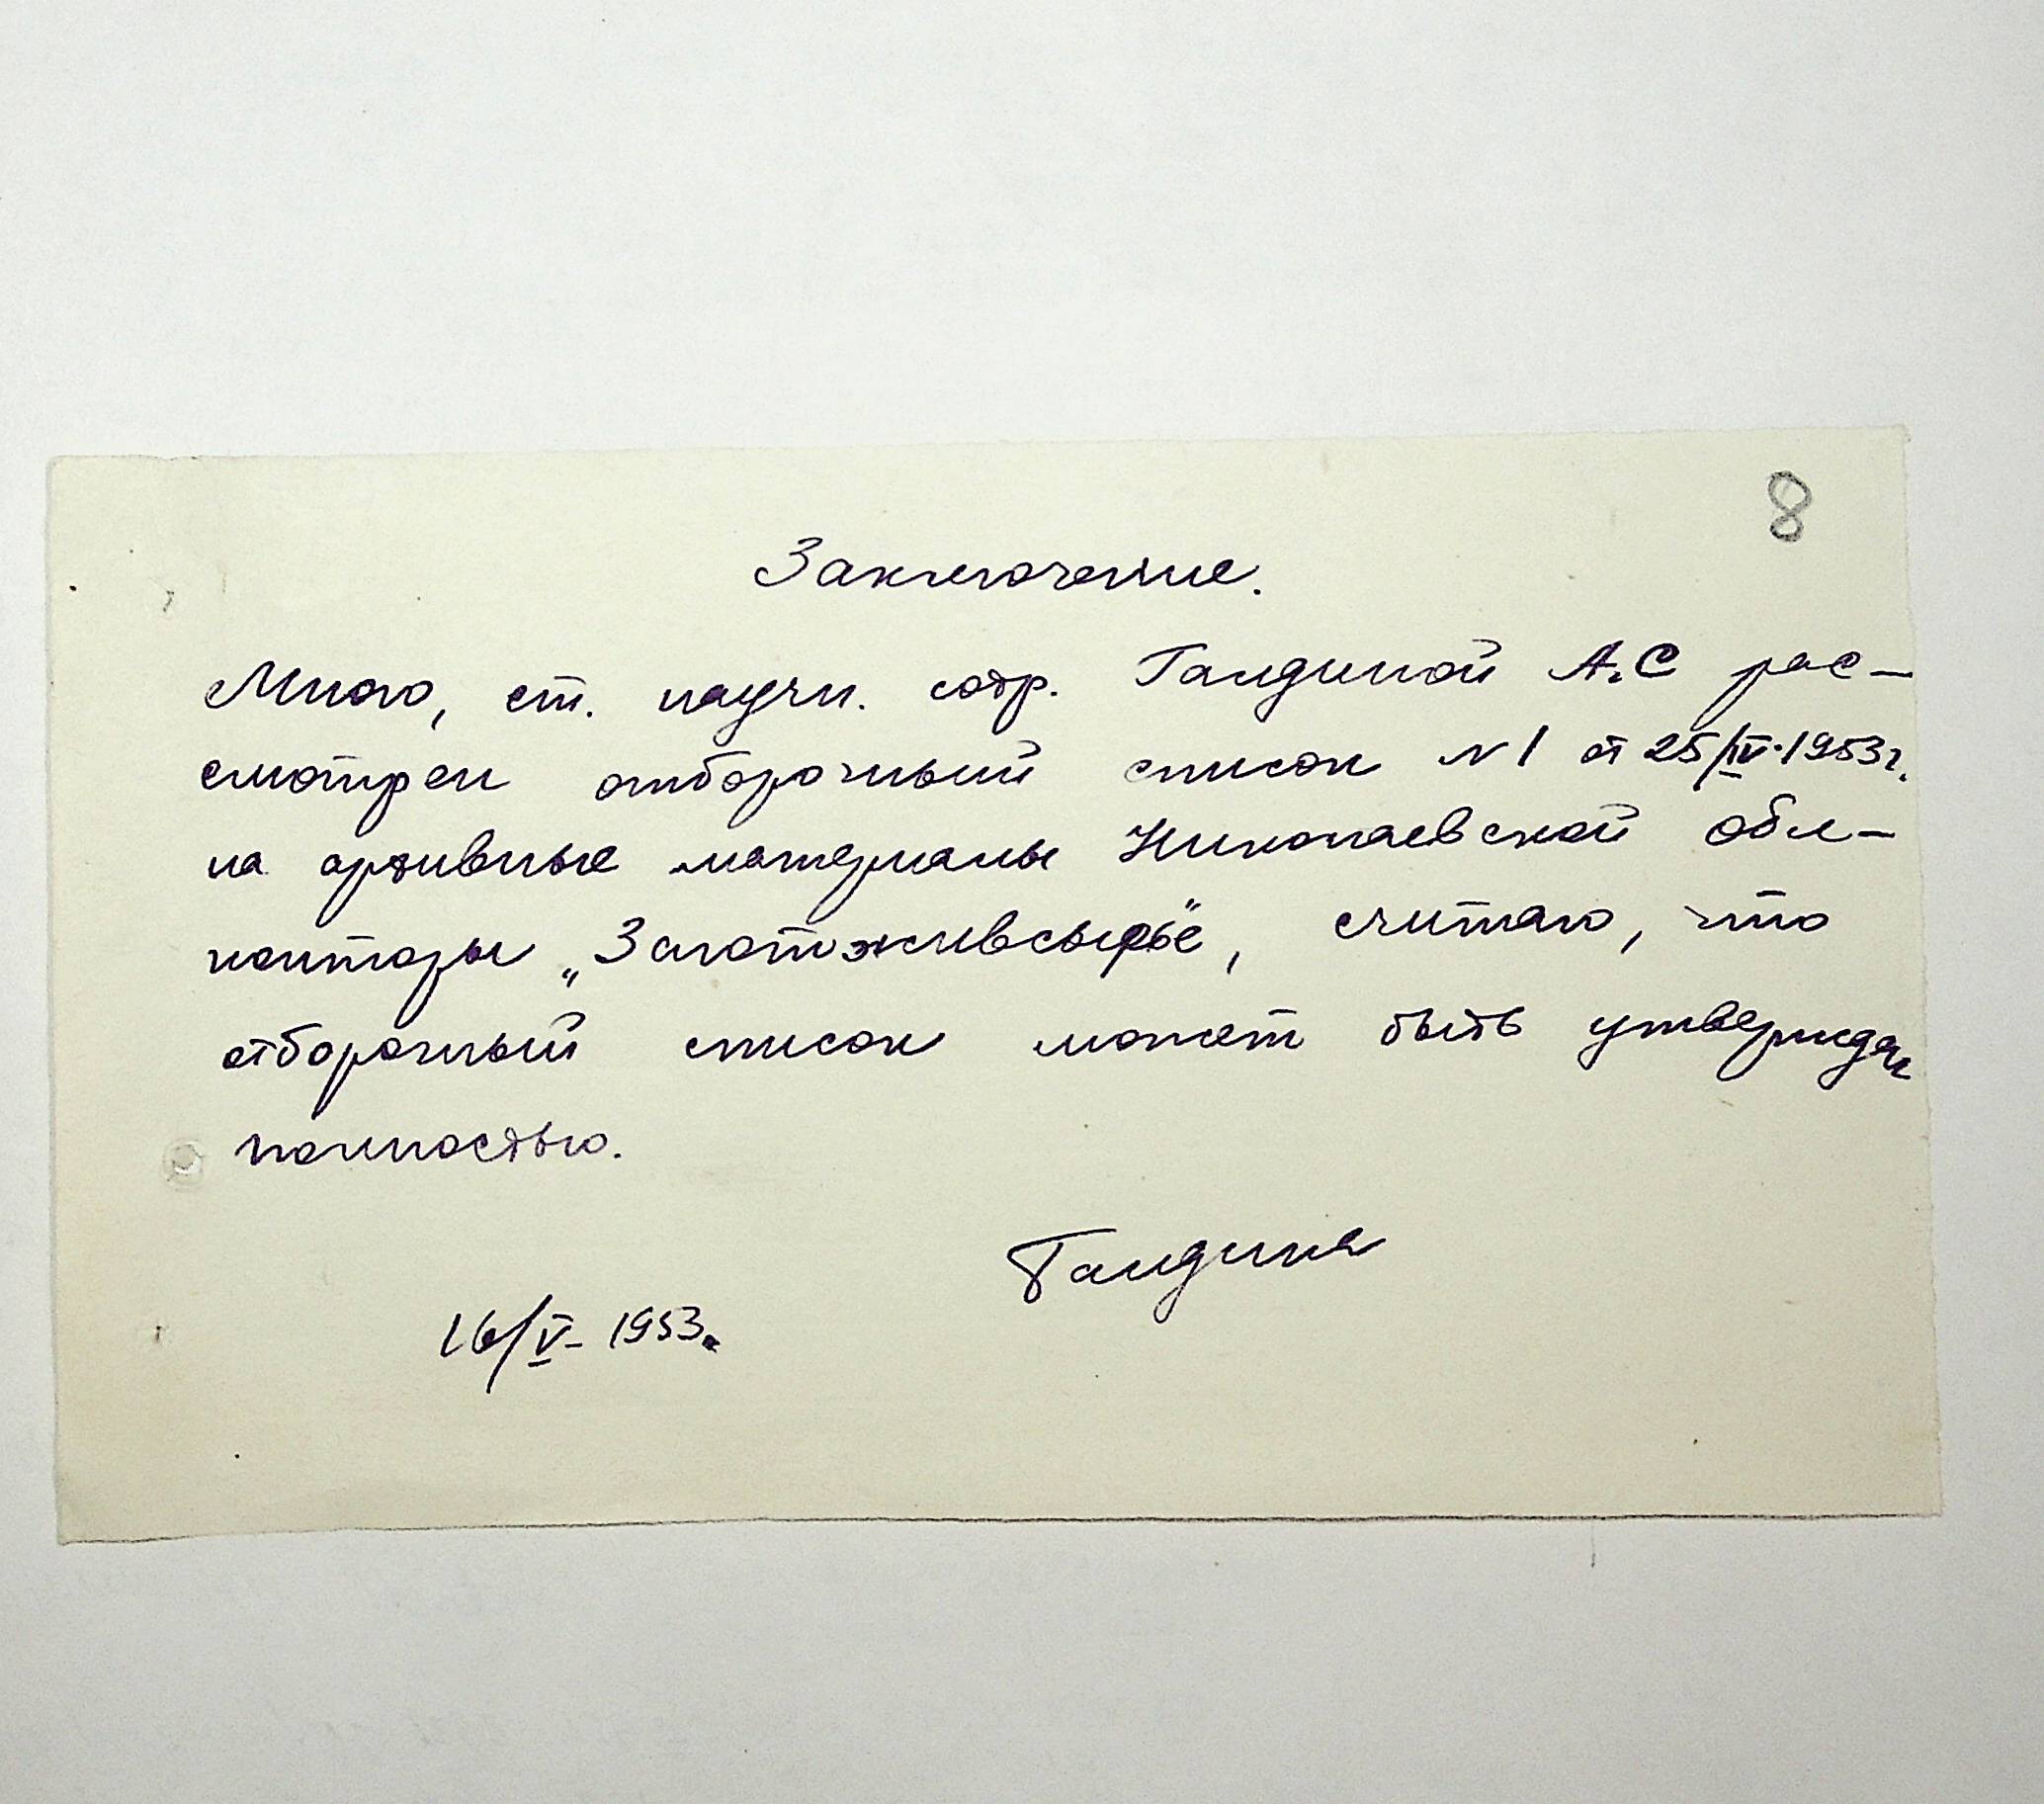 8
Заключение.
Мною, ст. научн. сотр. Галдиной А.С рас-
смотрен отборочный список N 1 от 25/IV-1953г.
на архивные материалы Николаевской обл-
конторы „Заготживсырье", считаю, что
отборочный список может быть утвержден
полностью.
Галдина
16/V- 1953г.